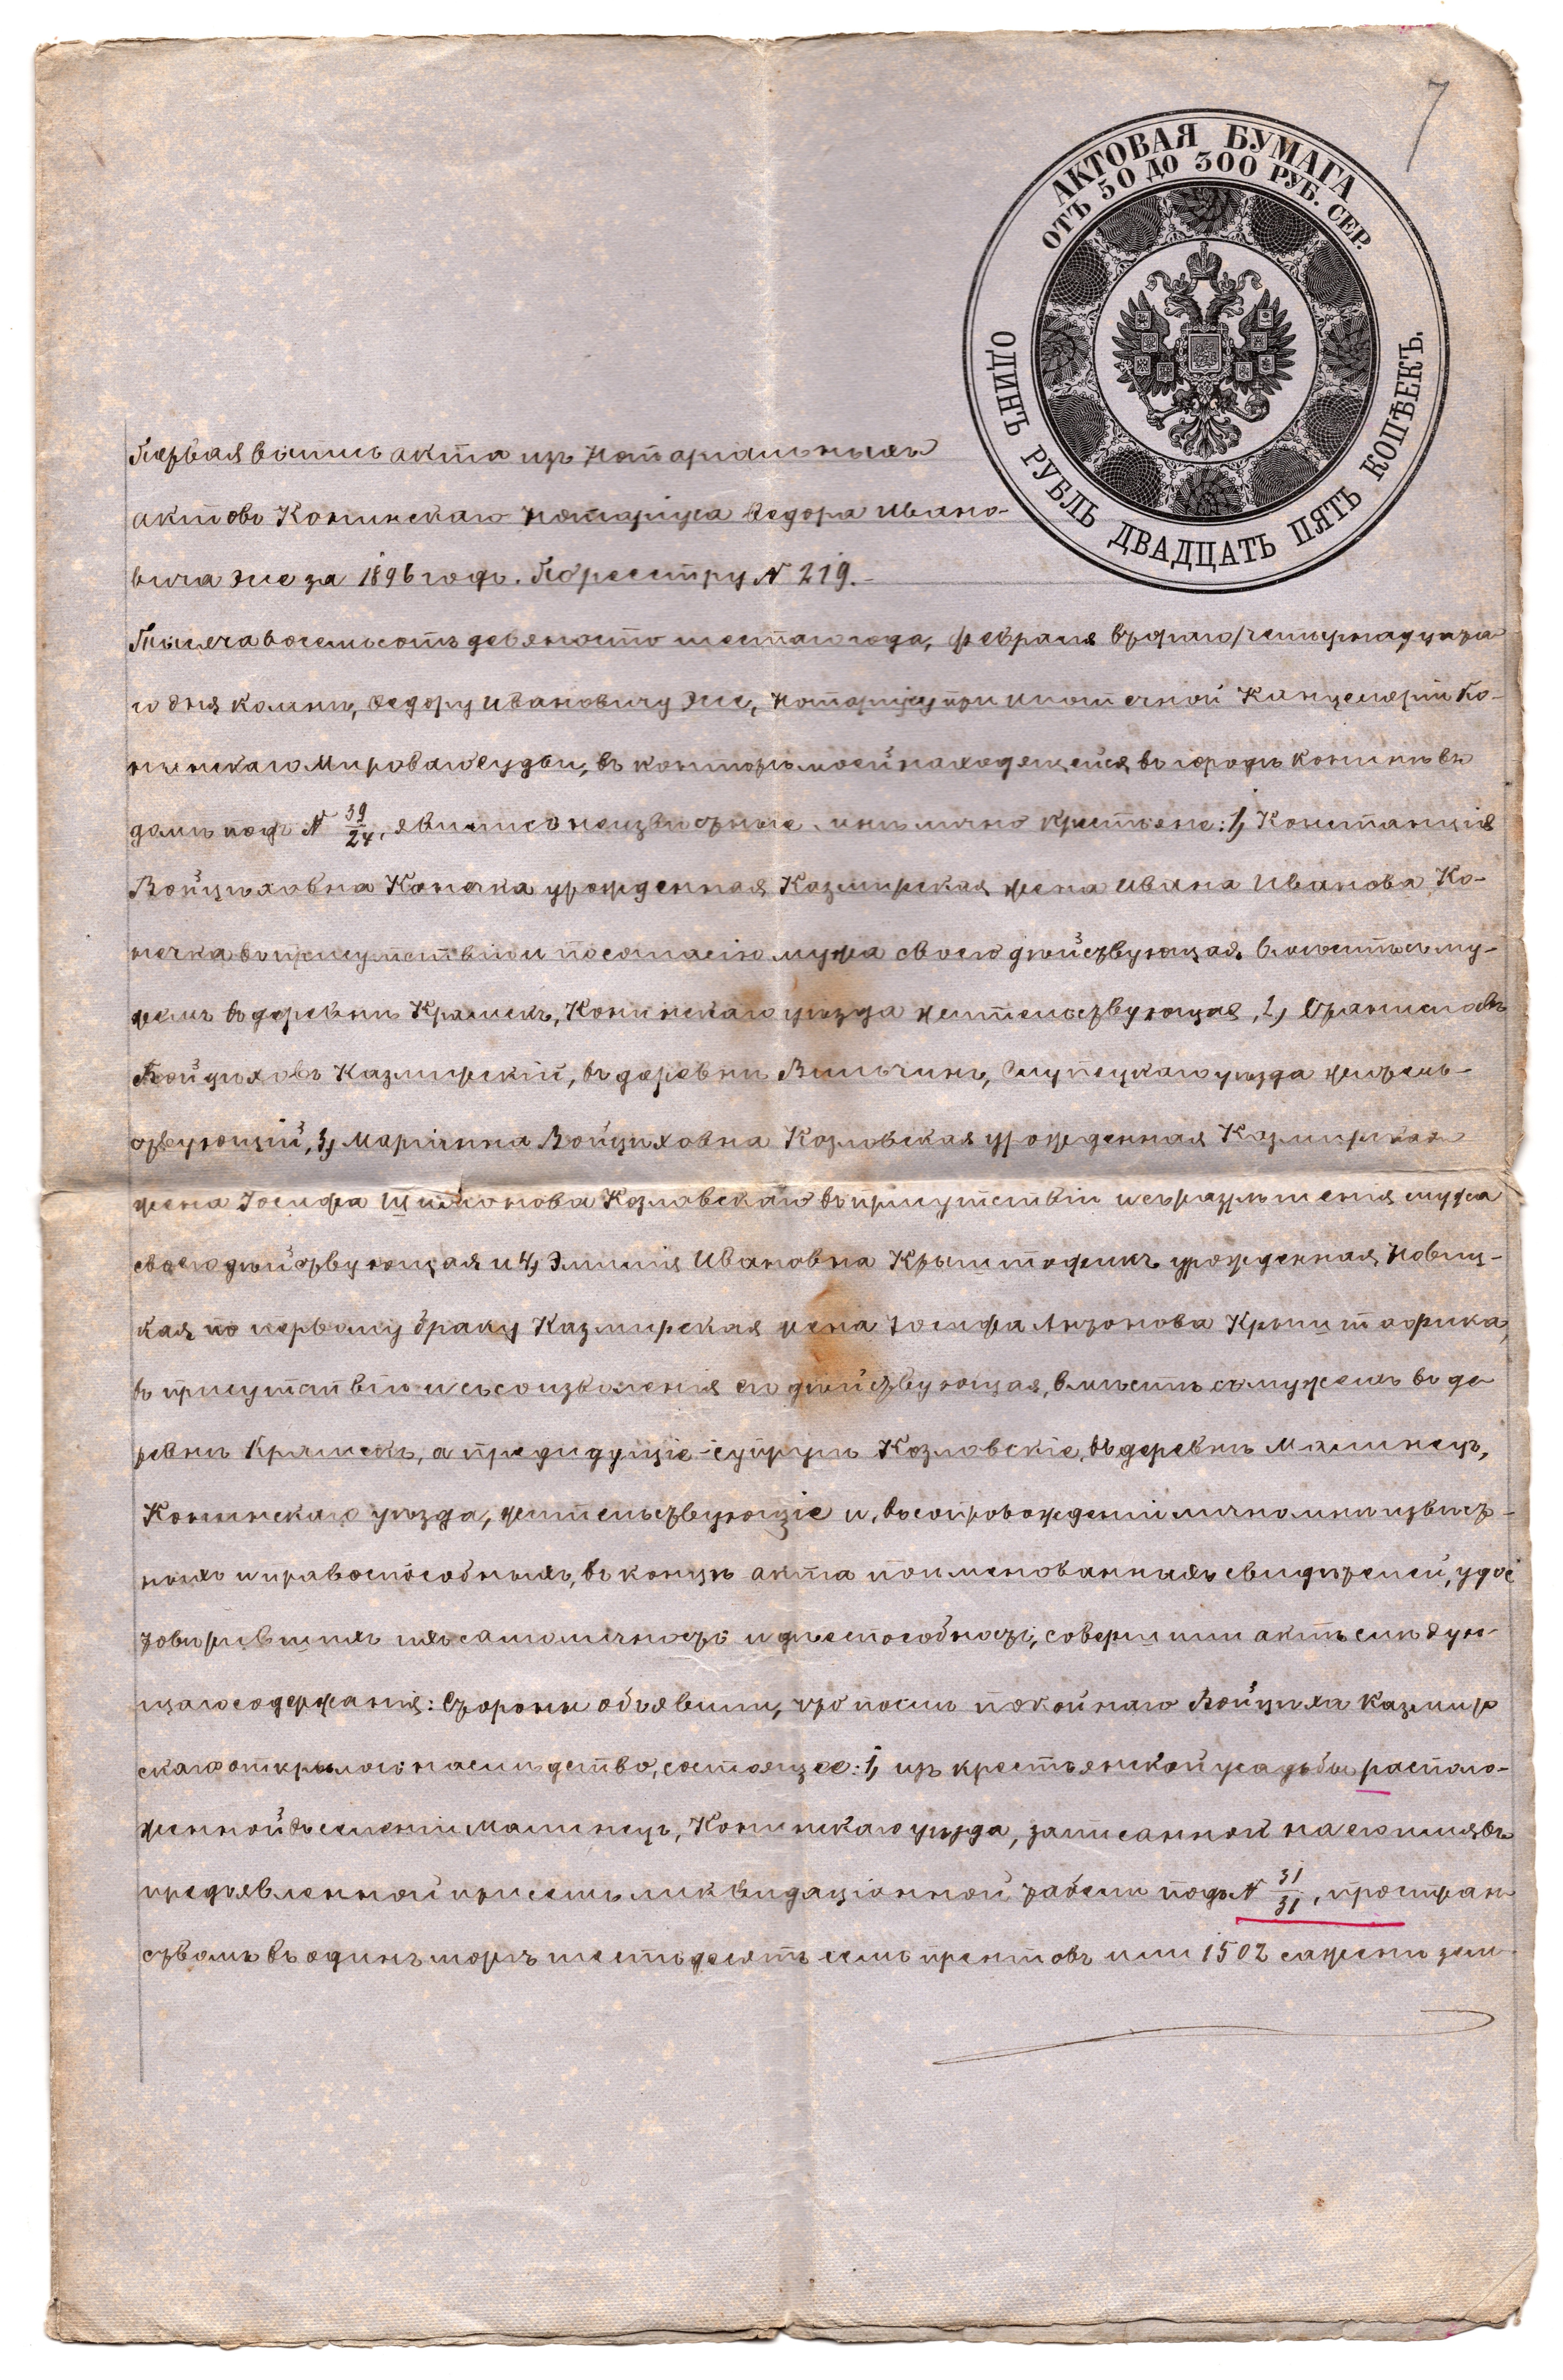 7
АКТОВАЯ БУМАГА
ОТЪ 50 ДО 300 РУБ. СЕР.
ОДИНЪ РУБЛЬ ДВАДЦАТЬ ПЯТЬ КОПѢЕКЪ.
Первая выпись акта изъ нотаріальныхъ
актовъ Конинскаго Нотаріуса Ѳедора Ивано-
вича Эсе за 1896 годъ. По реестру № 219.
Тысяча восемьсотъ девяносто шестаго года, февраля втораго/четырнадцата
го дня ко мнѣ, Ѳедору Ивановичу Эсе, Нотаріусу при ипотечной Канцеляріи Ко-
нинскаго Мироваго Судьи, въ контору мою находящейся въ городѣ Конинѣ въ
домѣ подъ № 39/24, явились неизвѣстные мнѣ лично крестьяне: 1, Констанція
Войцѣховна Конечка урожденная Казмирская жена Ивана Иванова Ко-
нечка въ присутствіи и по согласію мужа своего дѣйствующая, вмѣстѣ съ му-
жемъ въ деревнѣ Крамскъ, Конинскаго уѣзда жительствующая, 2, Станиславъ
Войцѣховъ Казмирскій, въ деревнѣ Вильчинъ, Слупецкаго уѣзда житель-
ствующій, 3, Маріанна Войцѣховна Козловская урожденная Казмирская
жена Іосифа Шимонова Козловскаго въ присутствіи и съ разрѣшенія мужа
своего дѣйствующая и 4, Эмилія Ивановна Крыштофикъ урожденная Новиц-
кая, по первому браку Казмирская жена Іосифа Антонова Крыштофика,
въ присутствіи и съ соизволенія его дѣйствующая, вмѣстѣ съ мужемъ въ де
ревнѣ Крамскъ, а предидущіе супруги Козловскіе, въ деревнѣ Малинецъ,
Конинскаго уѣзда, жительствующіе и, въ сопровожденіи лично мнѣ извѣст-
ныхъ и правоспособныхъ, въ концѣ акта поименованныхъ свидѣтелей, удос
товѣрившихъ ихъ самоличность и дѣеспособность, совершили актъ слѣдую-
щаго содержанія: Стороны объявили, что послѣ покойнаго Войцѣха Казмир
скаго открылось наслѣдство, состоящее: 1, изъ крестьянской усадьбы располо-
женной въ селеніи Малинецъ, Конинскаго уѣзда, записанной на его имя въ
предъявленной при семъ ликвидаціонной табели подъ № 31/31, простран
ствомъ въ одинъ моргъ шестьдесятъ семь прентовъ или 1502 сажени зем-